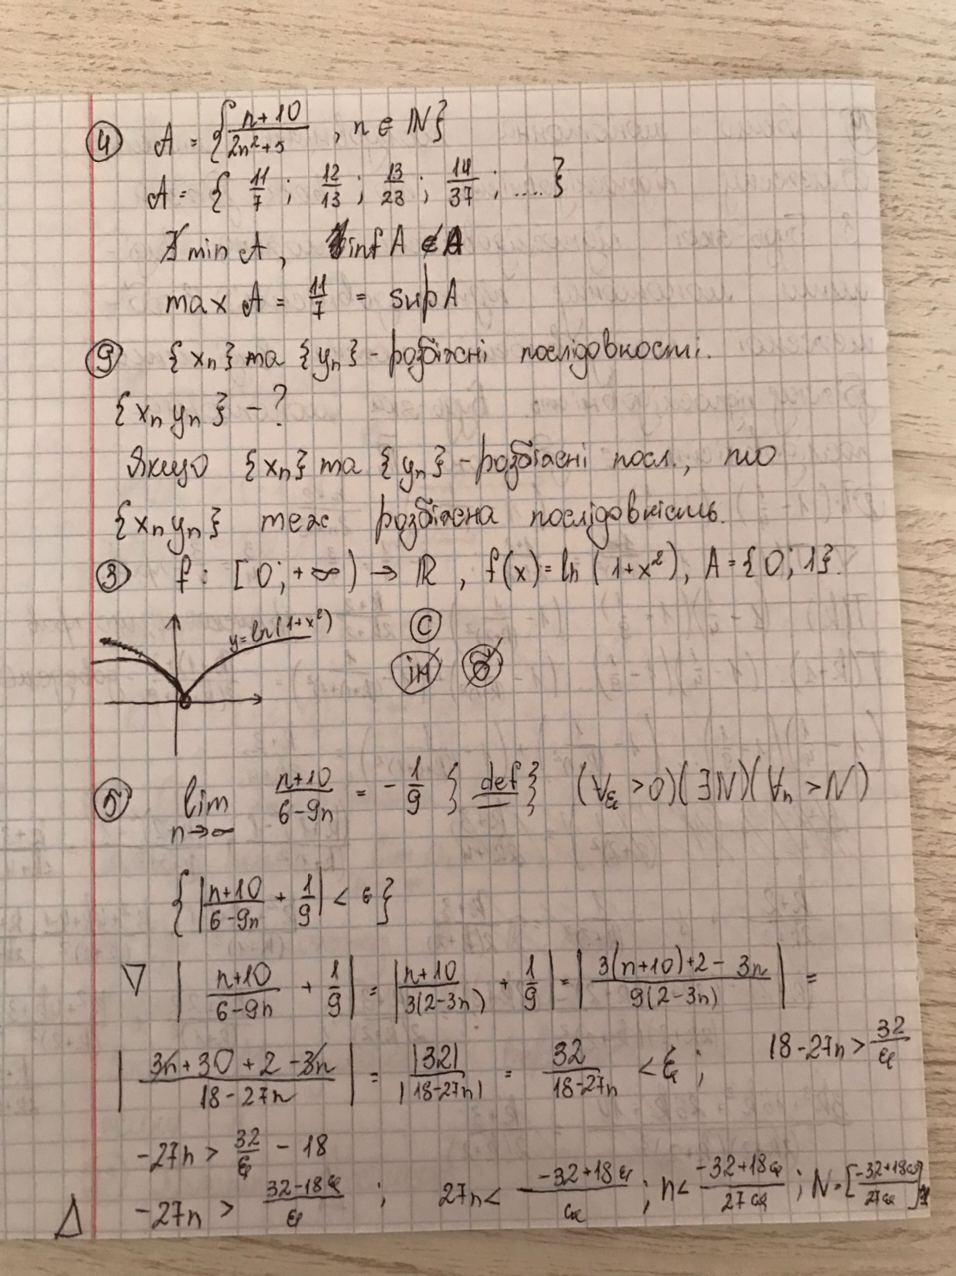 ④ A = { (n+10)/(2n²+5) , n ∈ ℕ }
A = { 11/7 ; 12/13 ; 13/23 ; 14/37 ; .... }
∄ min A, inf A ∉ A
max A = 11/7 = sup A
⑨ {xₙ} та {yₙ} - розбіжні послідовності.
{xₙyₙ} - ?
Якщо {xₙ} та {yₙ} - розбіжні посл., то
{xₙyₙ} теж розбіжна послідовність.
③ f : [0; +∞) → ℝ , f(x) = ln(1+x²), A = {0; 1}.
y = ln(1+x²)
Ⓒ
ін б
⑤ lim n→∞ (n+10)/(6-9n) = - 1/9 } def } (∀ε > 0)(∃N)(∀n > N)
{ | (n+10)/(6-9n) + 1/9 | < ε }
▽ | (n+10)/(6-9n) + 1/9 | = | (n+10)/(3(2-3n)) + 1/9 | = | (3(n+10)+2-3n)/(9(2-3n)) | =
| (3n+30+2-3n)/(18-27n) | = |32|/|18-27n| = 32/(18-27n) < ε ; 18-27n > 32/ε
-27n > 32/ε - 18
△ -27n > (32-18ε)/ε ; 27n < (-32+18ε)/ε ; n < (-32+18ε)/(27ε) ; N = [(-32+18ε)/(27ε)]